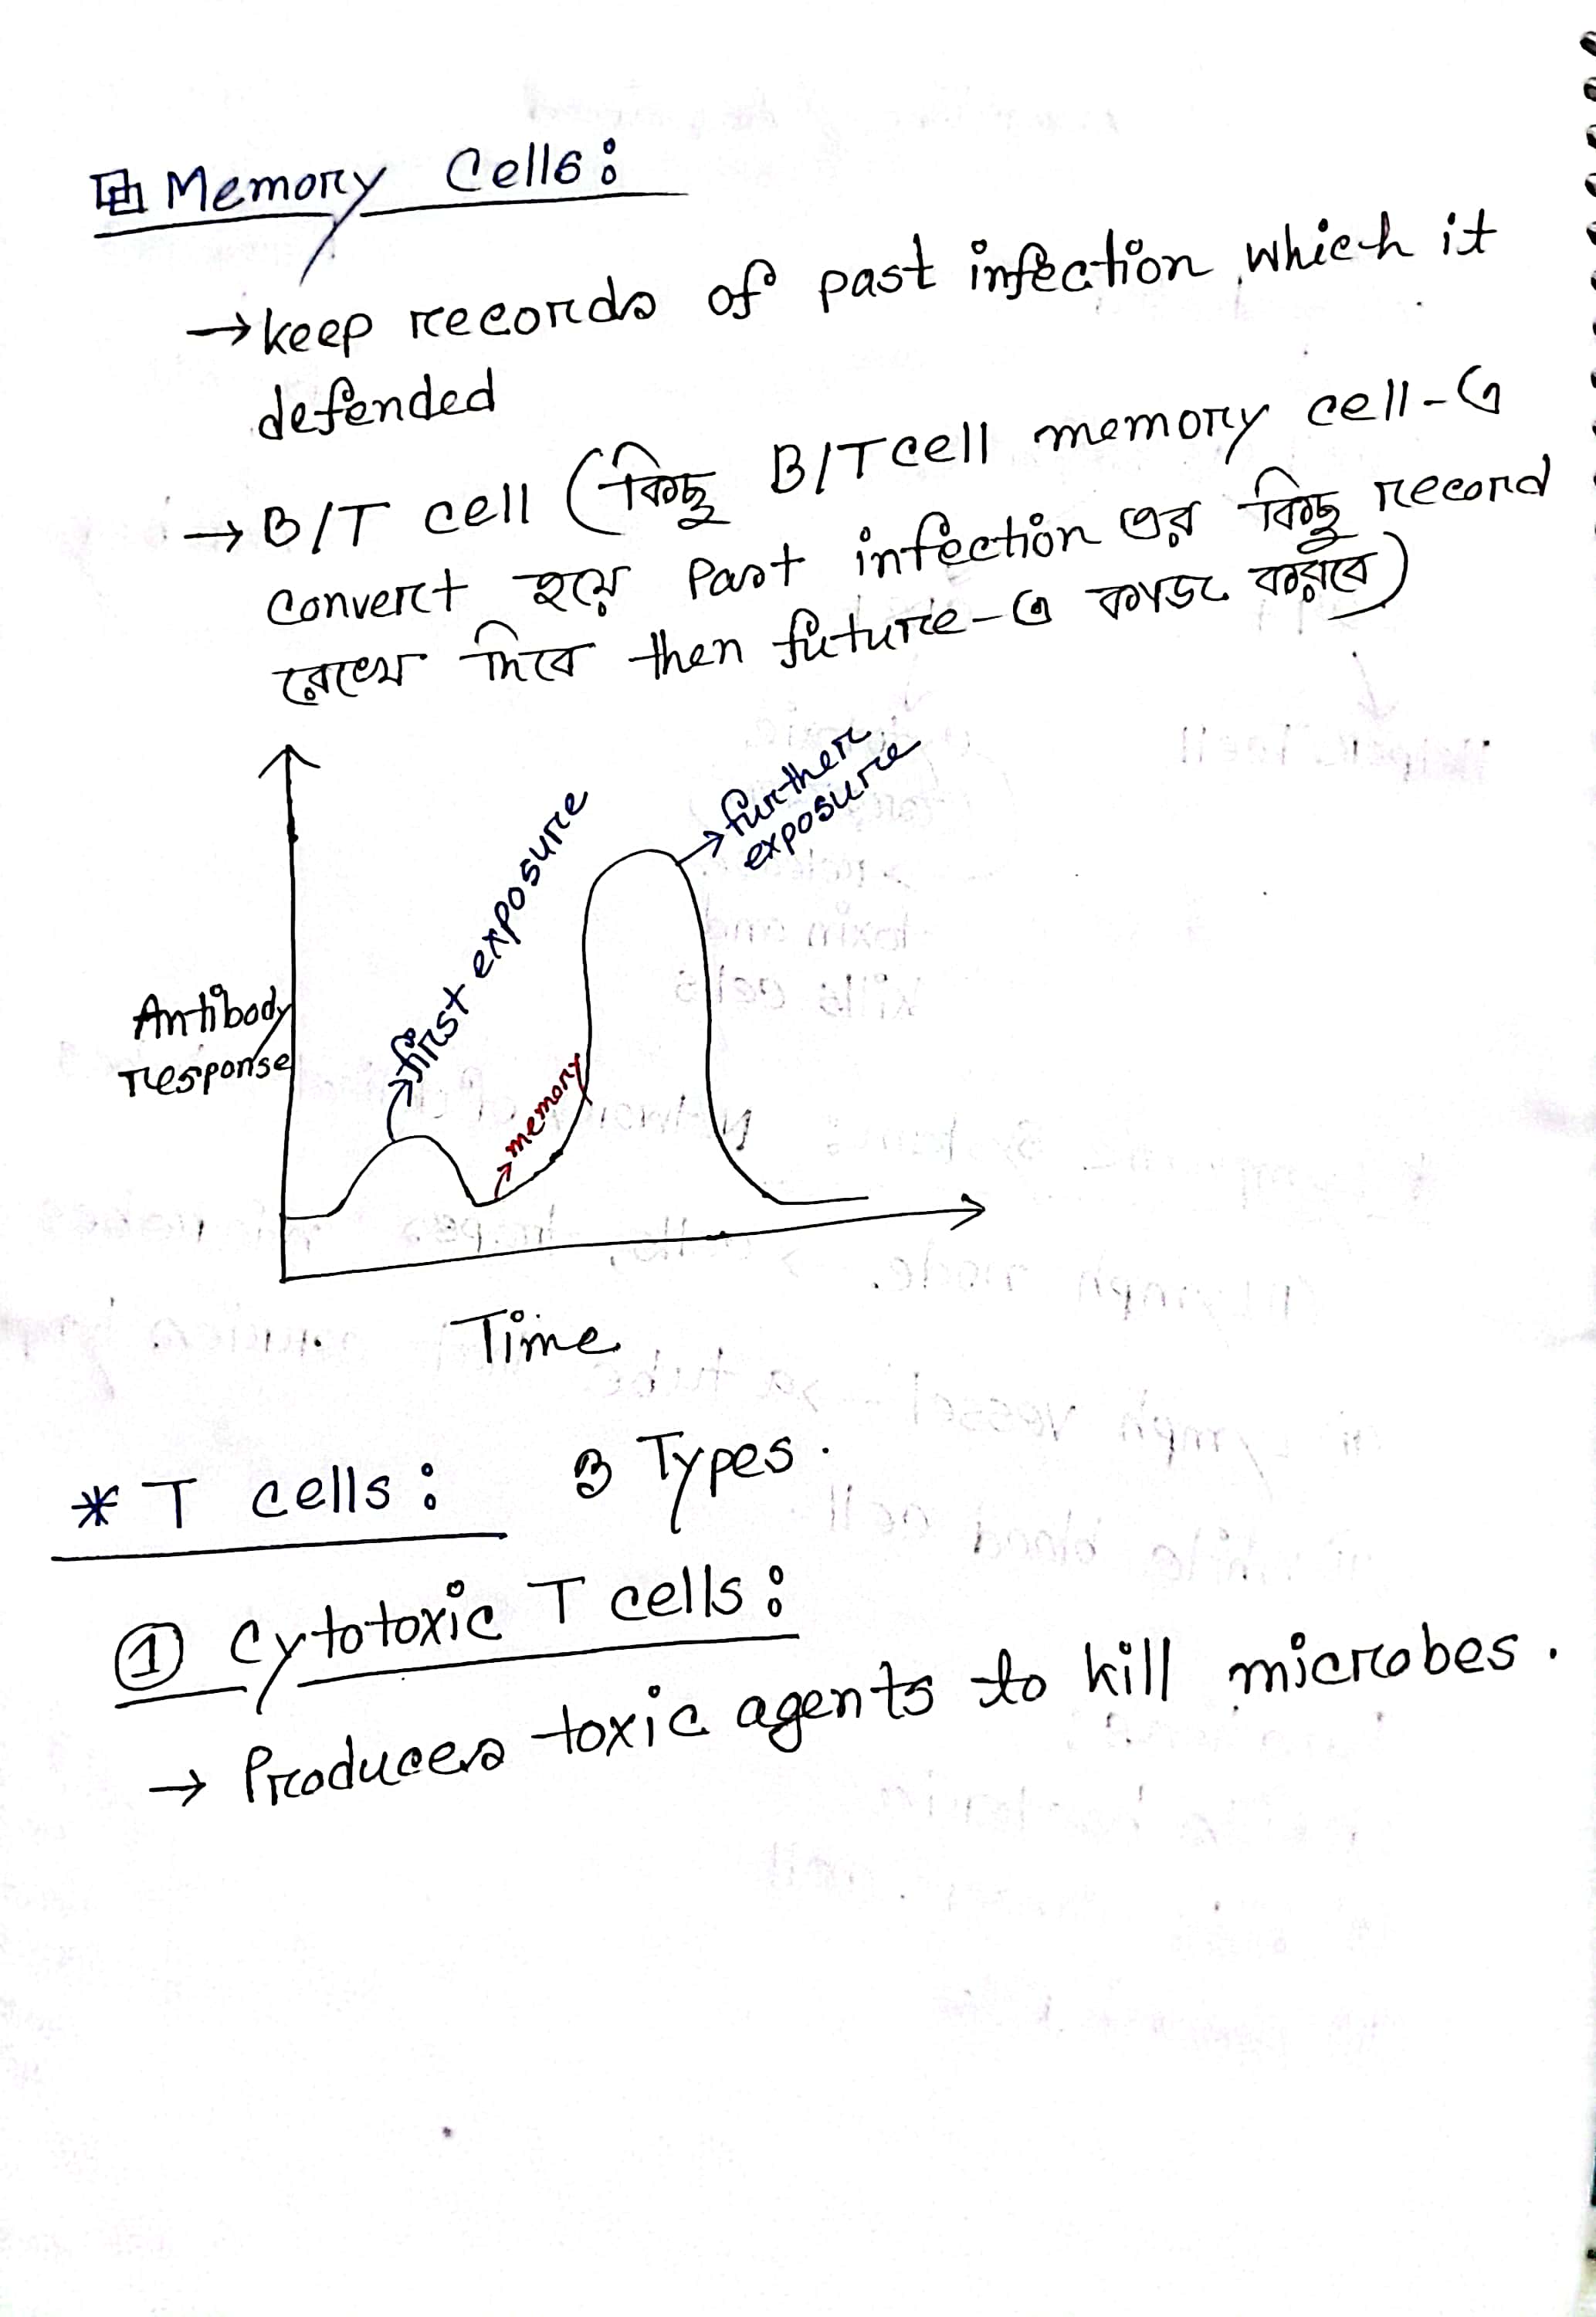 Memory Cells:
→ keep records of past infection which it
defended
→ B/T cell (কিছু B/T cell memory cell-এ
convert হয়ে Past infection এর কিছু record
রেখে দিবে then future-এ কাজে করাবে)
first exposure
→ further
exposure
Antibody
response
memory
Time
* T cells: 3 Types.
① Cytotoxic T cells:
→ Produces toxic agents to kill microbes.